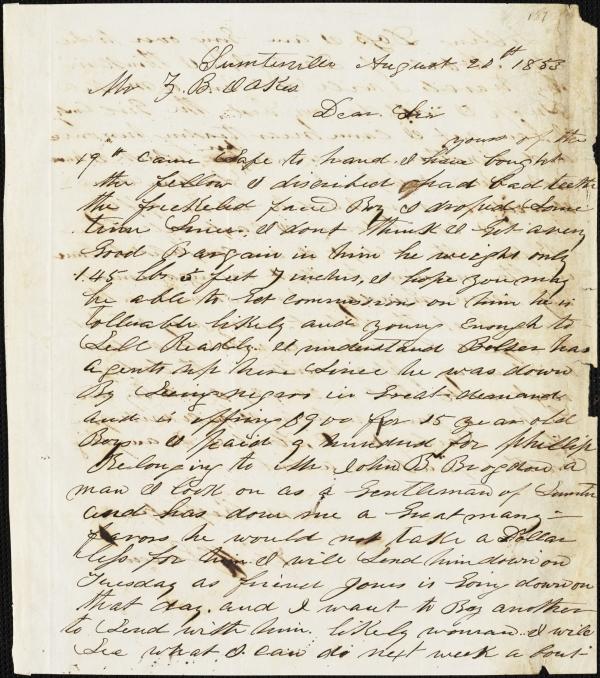 157
Sumterville August 20th 1853
Mr Z. B. Oakes
Dear Sir
yours of the
19th came Safe to hand I have bought
the fellow I discribed had bad teeth
the freckeled face Boy I droped Some
time Since. I dont think I got a very
Good Bargain in him he weighs only
145 lbs 5 feet 7 inches, I hope you may
be able to Get commission on him he is
tolluable likely and young enough to
Sell Readly. I understand has
agents up here Since he was down
By Seeing negros in Great demand
and is offring $900 for 15 year old
Boys I paid 9 hundred for Phillip
Belonging to Mr John B. Brogdon a
man I look on as a Gentleman of Sumter
and has done me a Great many
favors he would not take a Dollar
less for him I will Send him down on
Tuesday as friend Jones is Going down on
that day and I want to Boy another
to Send with him, likely woman. I will
See what I can do next week a bout